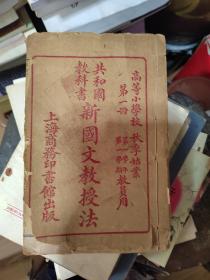 高等小學校 秋季始業
第一冊
教員用
共和國
教科書
新國文教授法
上海商務印書館出版